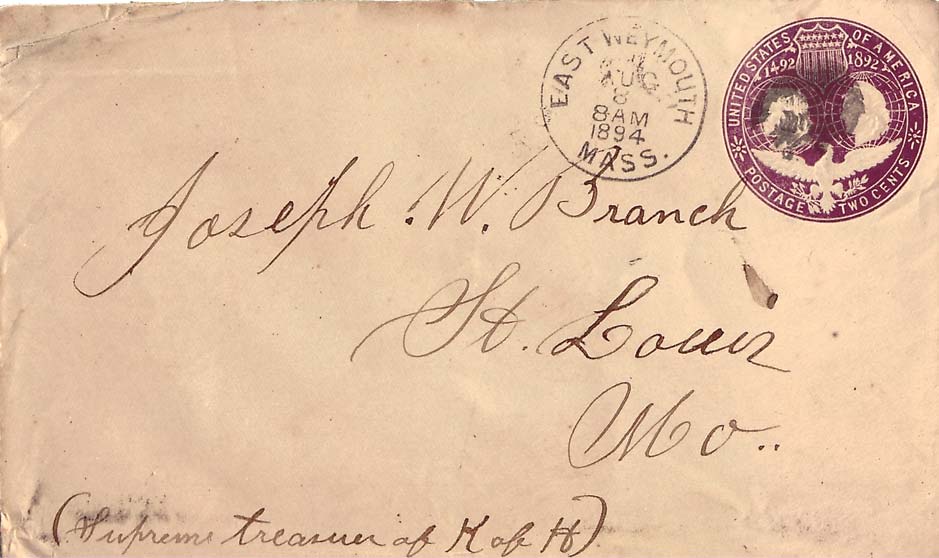 EAST WEYMOUTH
AUG
8
8AM
1894
MASS.
UNITED STATES OF AMERICA
1492 1892
POSTAGE TWO CENTS
Joseph W. Branch
St. Louis
Mo..
(Supreme treasurer of K of H)